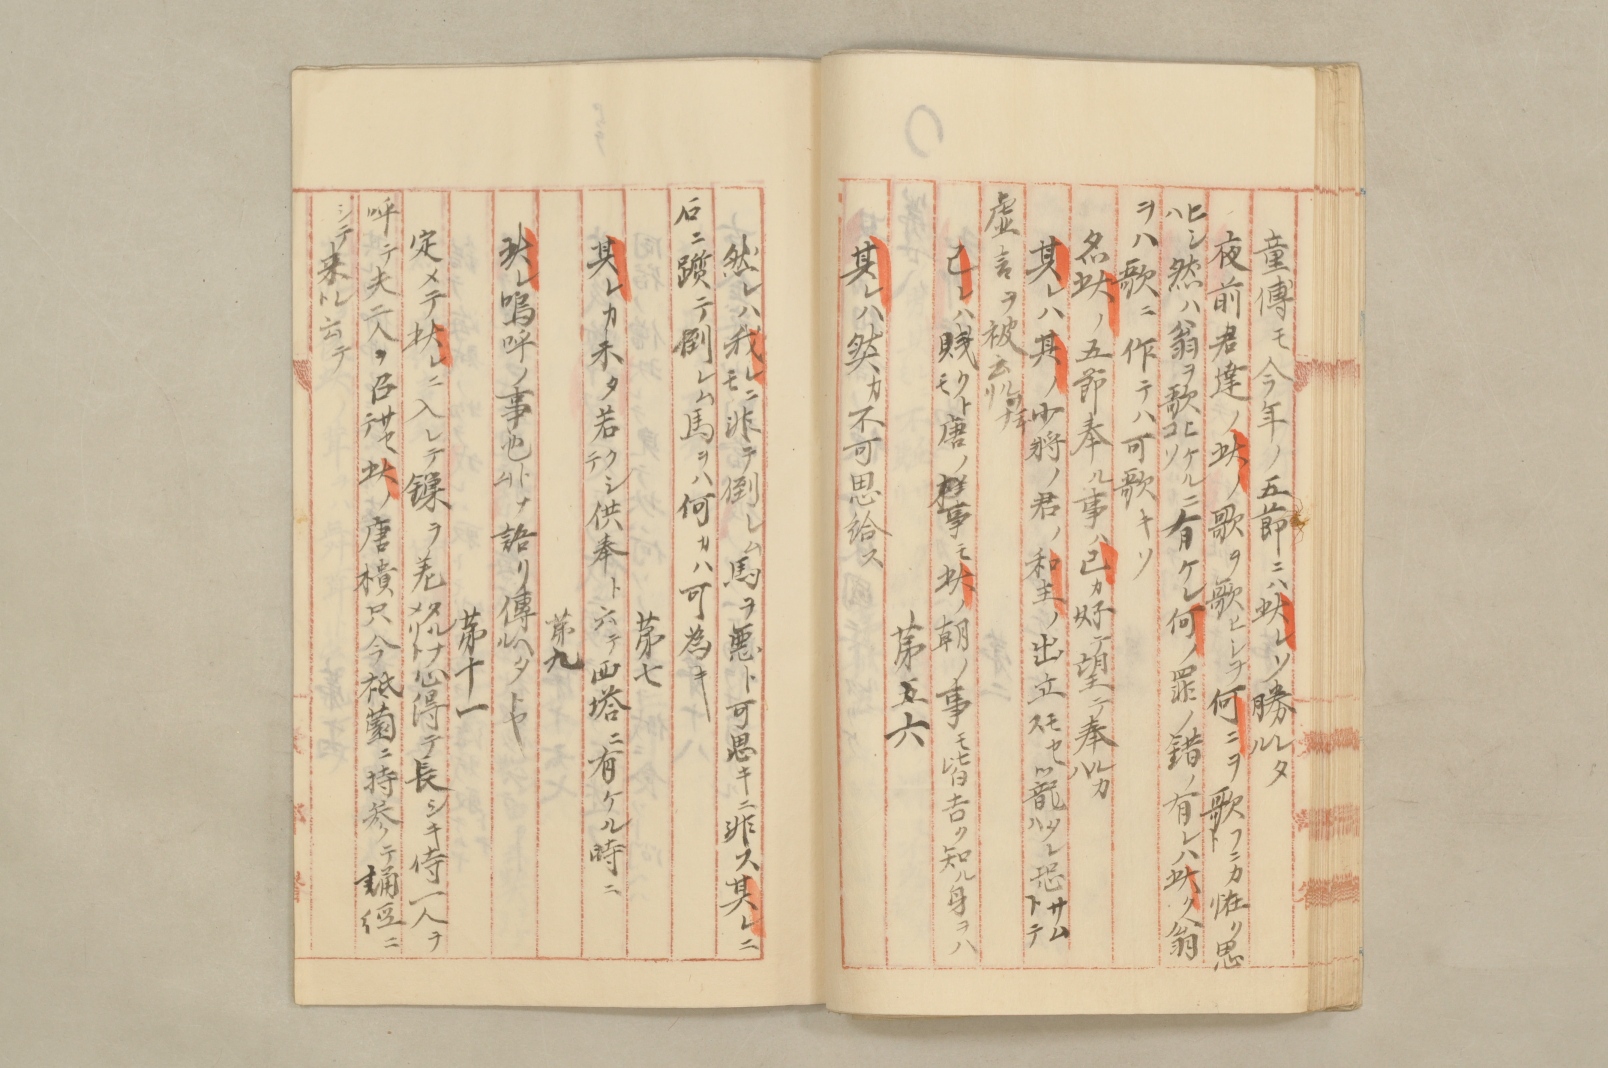 童傅モ今年ノ五節ニハ此レソ勝レタル
夜前君達ノ此ノ歌ヲ歌ヒシヲ何ニヲ歌フニカト怪リ思
ヒシハ然ハ翁ヲ歌ヒケルニコソ有ケレ何ノ罪ノ錯ノ有レハ此ク翁
ヲハ歌ニ作テハ可歌キソ
名此ノ五節奉ル事ハ己カ好テ望テ奉ルカハ
其レハ其ノ少将ノ君ノ和主ノ出立モセスハ籠タレハ恐サムトテ
虚言ヲ被云
己レハ賤クトモ唐ノ事モ此ノ朝ノ事モ皆吉ク知ル身ヲハ
第五六
其レハ然カ不可思給ス
然レハ我レニモ非テ倒レム馬ヲ悪ト可思キニ非ス其レニ
石ニ躓テ倒レム馬ヲハ何カハ可為キ
第七
其レカ未タ若クシテ供奉ト云テ西塔ニ有ケル時ニ
第九
此レ嗚呼ノ事也トナム語リ傳ヘタルトヤ
第十一
定メテ此レニ入レテ鏁ヲ差タルナメリト心得テ長シキ侍一人ヲ
呼テ夫二人ヲ召サセテ此ノ唐樻只今祇薗ニ持参テ誦経ニ
シテ来レト云テ